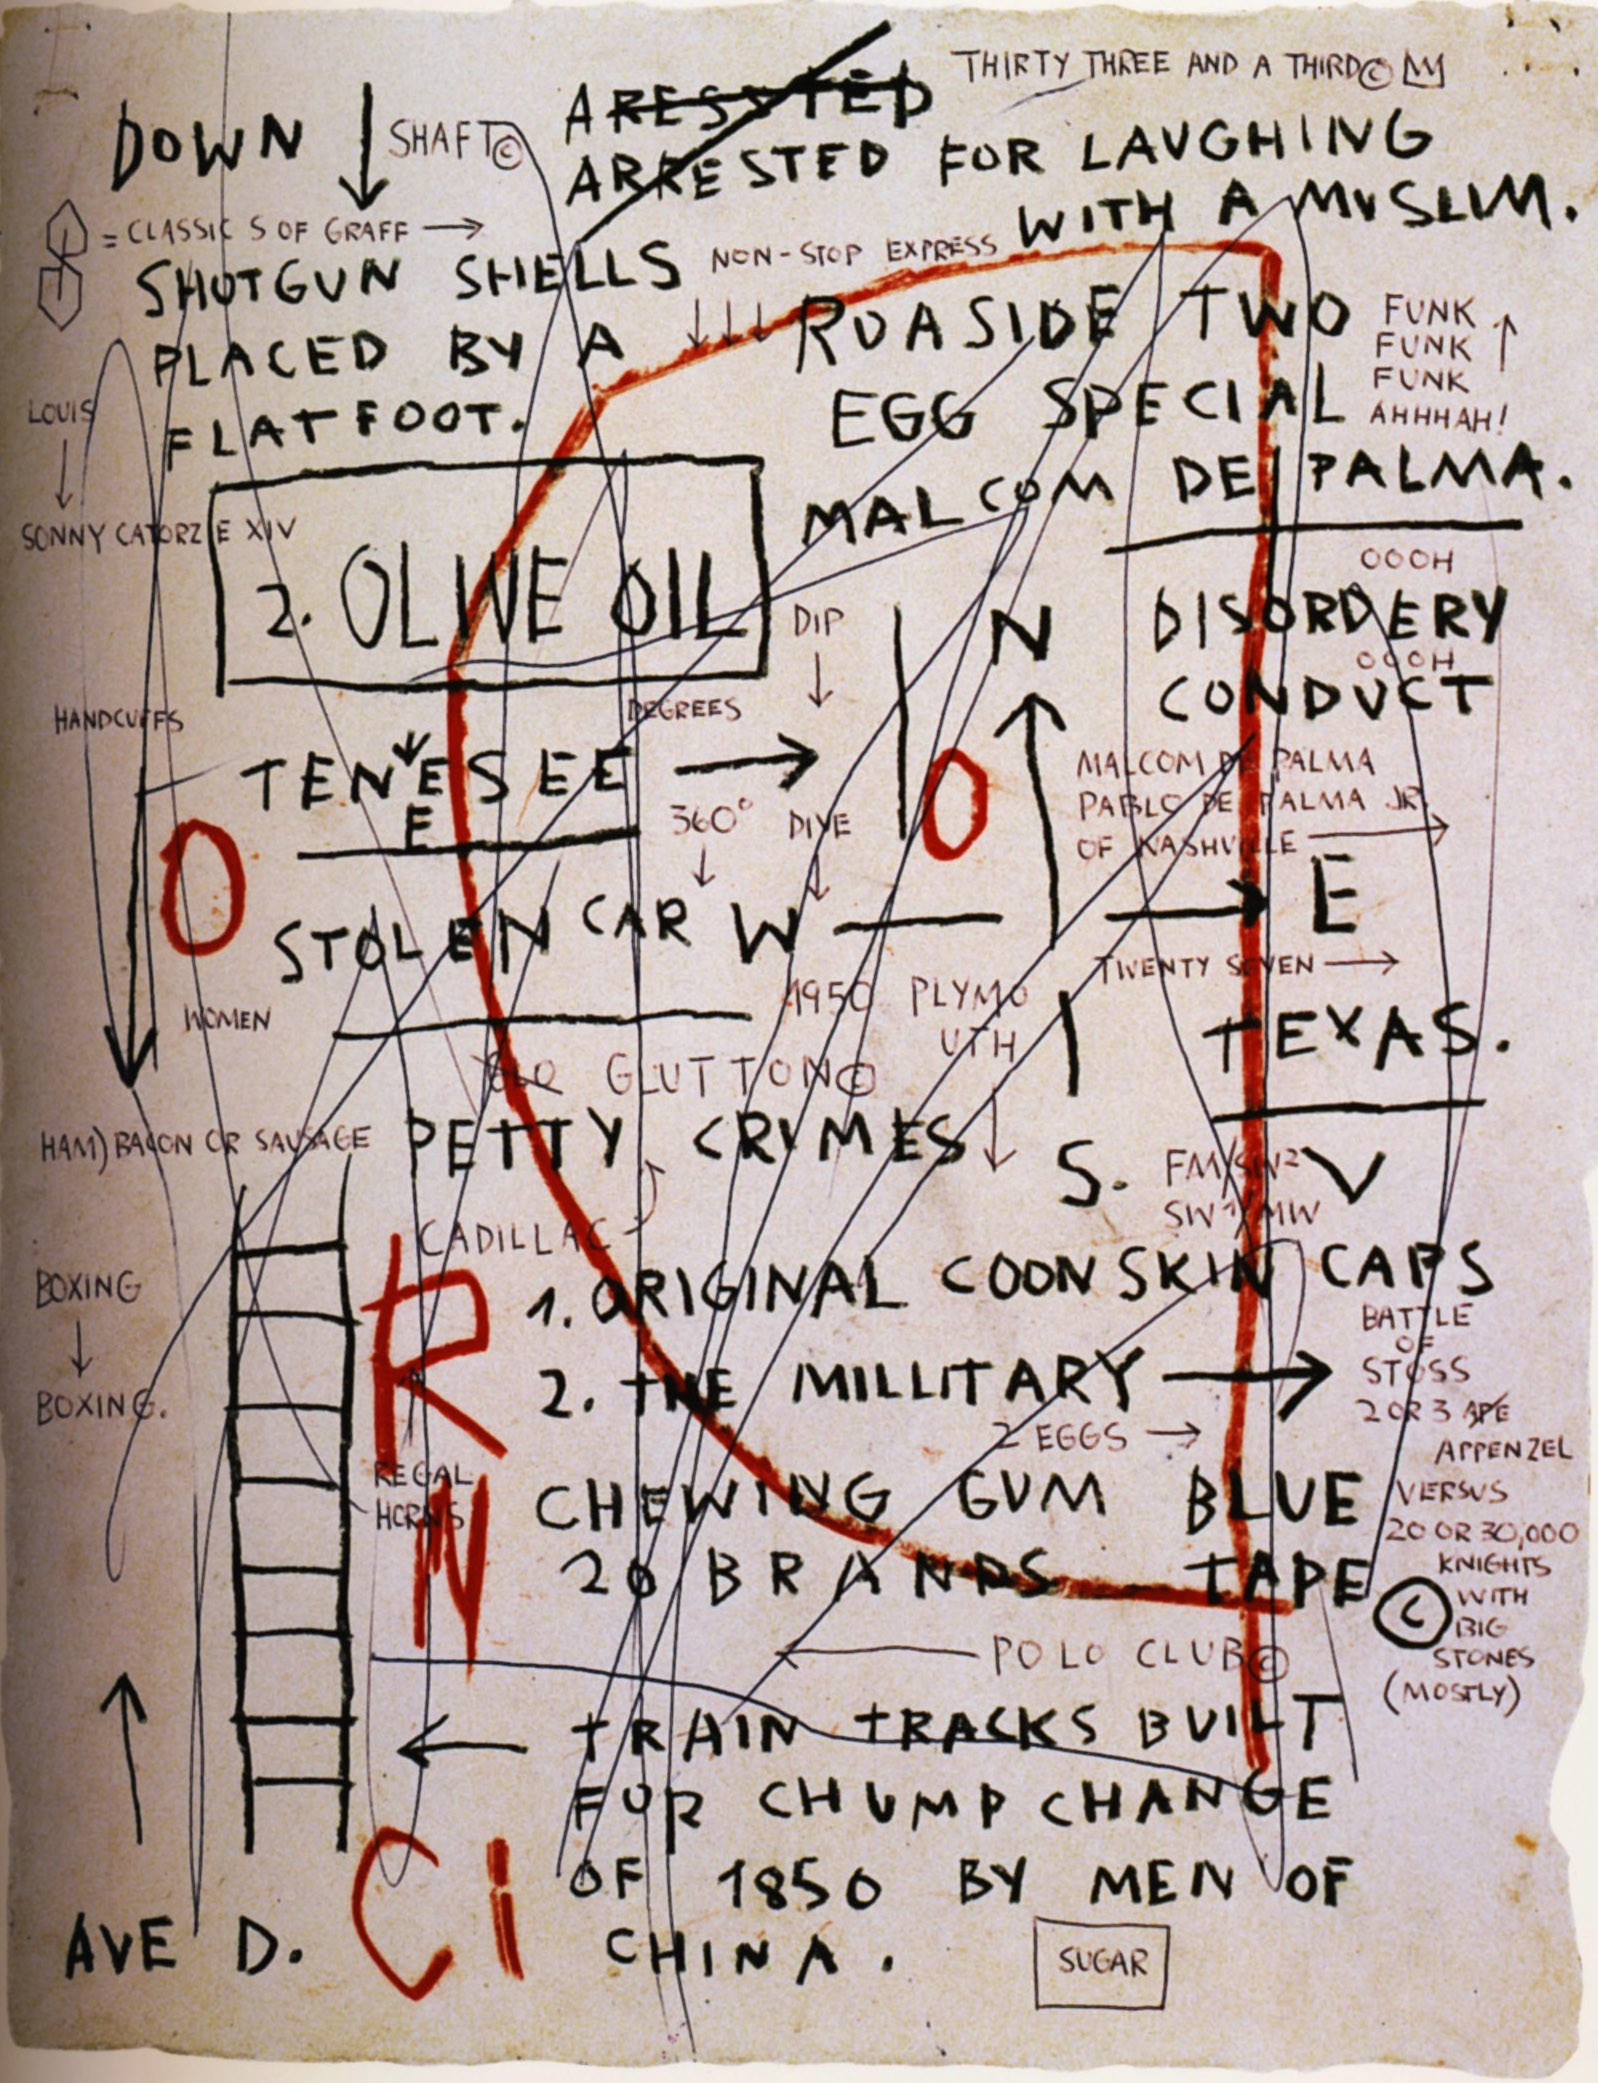 THIRTY THREE AND A THIRD©
ARESSTED
DOWN ↓ SHAFT©
ARRESTED FOR LAUGHING
WITH A MUSLIM.
= CLASSIC S OF GRAFF →
SHOTGUN SHELLS
PLACED BY A
FLATFOOT.
NON-STOP EXPRESS
↓↓↓
ROASIDE TWO
EGG SPECIAL
MALCOM DE PALMA.
FUNK ↑
FUNK
FUNK
AHHHAH!
LOUIS
↓
SONNY CATORZIE XIV
2. OLIVE OIL
DIP
↓
N
↑
OOOH
DISORDERY
OOOH
CONDUCT
HANDCUFFS
DEGREES
TENESEE →
E
360°
↓
DIVE
↓
O
O
MALCOM DE PALMA
PABLO DE PALMA JR.
OF NASHVILLE →
STOLEN CAR W
→ E
TWENTY SEVEN →
WOMEN
1950 PLYMO
UTH
↓
TEXAS.
GLUTTON©
HAM) BACON OR SAUSAGE
PETTY CRIMES
S.
FM/SW²
SW¹/MW
V
CADILLAC
1. ORIGINAL COONSKIN CAPS
BOXING
↓
BOXING.
R
N
2. THE MILLITARY →
2 EGGS →
BATTLE
OF
STOSS
2 OR 3 APE
APPENZEL
VERSUS
20 OR 30,000
KNIGHTS
WITH
BIG
STONES
(MOSTLY)
REGAL
HORNS
CHEWING GUM BLUE
20 BRANDS TAPE
©
POLO CLUB©
← TRAIN TRACKS BUILT
FOR CHUMP CHANGE
OF 1850 BY MEN OF
CHINA.
↑
AVE D.
Ci
SUGAR